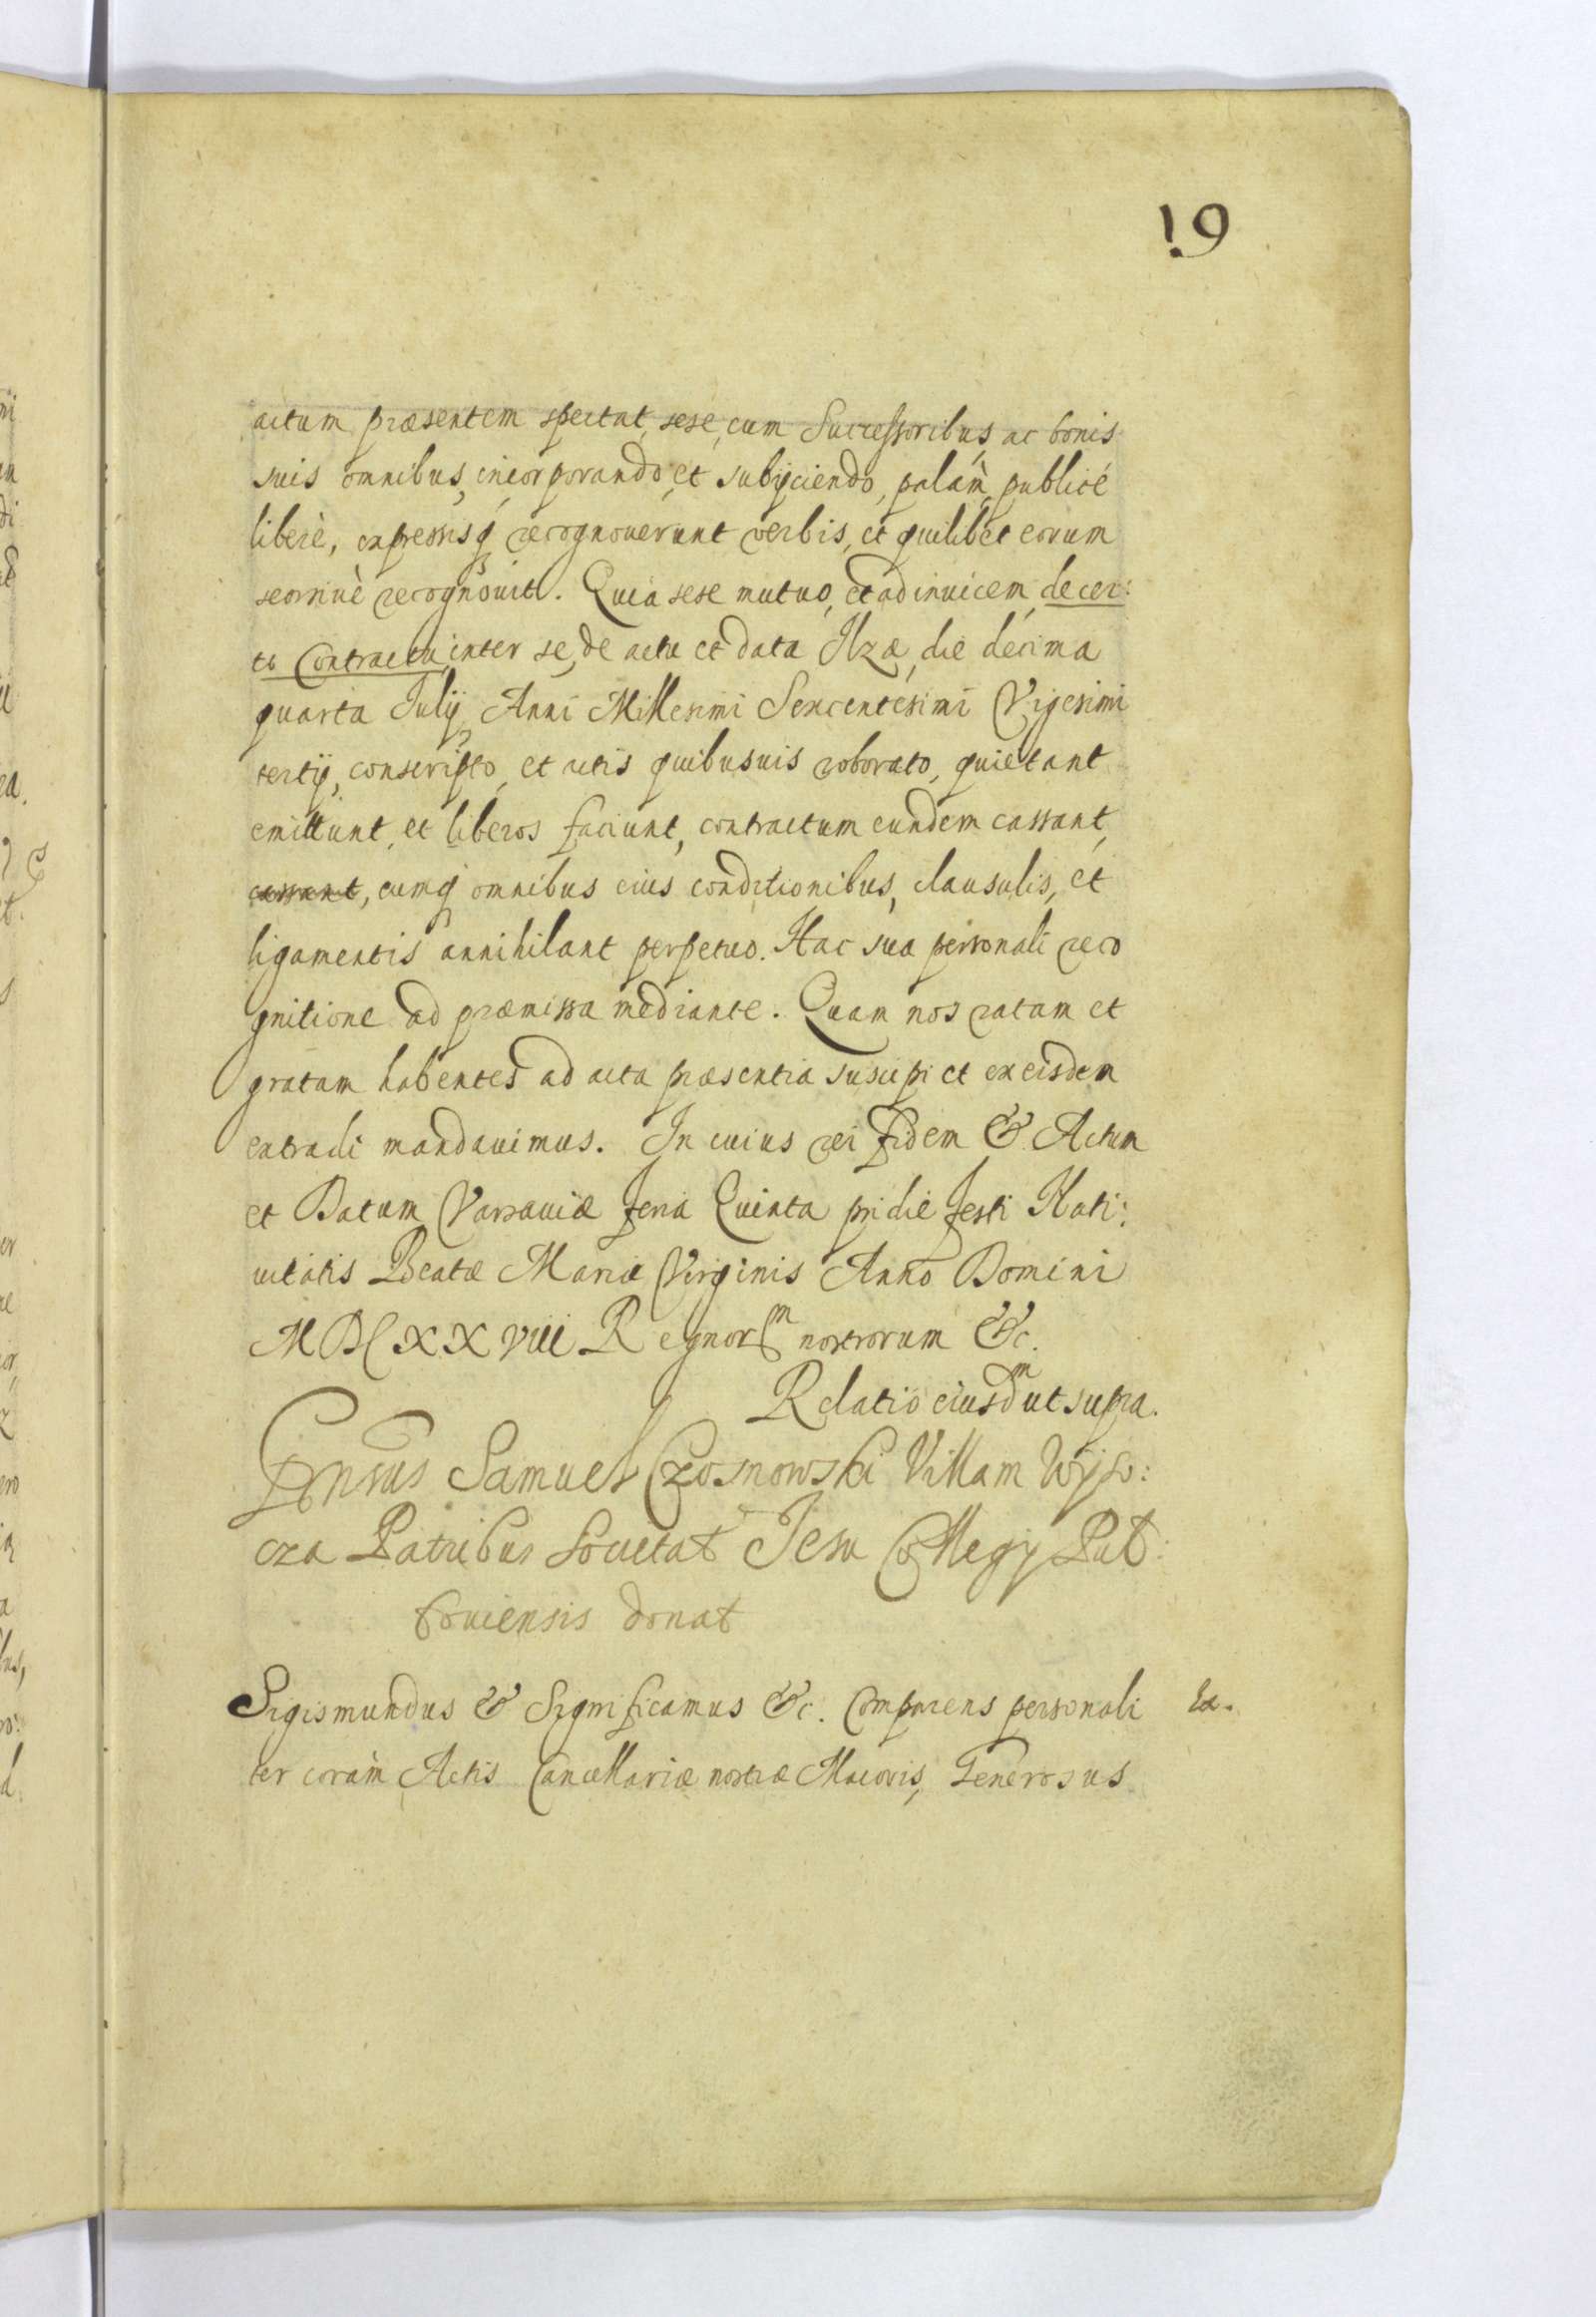 19
actum præsentem spectat, sese, cum Successoribus, ac bonis
suis omnibus, incorporando, et subijciendo, palàm, publicé
liberè, expressisq recognouerunt verbis, et quilibet eorum
seorsiuè recognouit. Quia sese mutuo, et ad inuicem, de cer:
to Contractu, inter se, de actu et data Ilzæ, die decima
quarta Julij Anni Millesimi Sexcentesimi Vigesimi
tertij, conscripto, et actis quibusuis roborato, quietant
emittunt, et liberos faciunt, contractum eundem cassant,
cassant, eumq omnibus eius conditionibus, clausulis, et
ligamentis annihilant perpetuo. Hac sua personali reco
gnitione ad præmissa mediante. Quam nos ratam et
gratam habentes ad acta præsentia suscipi et ex eisdem
extradi mandauimus. In cuius rei fidem & Actum
et Datum Varsauiæ feria Quinta pridie festi Nati:
uitatis Beatæ Mariæ Virginis Anno Domini
MDCXXVIII Regnorm nostrorum &c.
Relatio eiusdm ut supra.
Gnrsus Samuel Czosnowski Villam Wyso:
cza Patribus Societat Jesu Collegij Put
touiensis donat
Sigismundus & Significamus &c. Comparens personali
ter coràm Actis Cancellariæ nostræ Maioris, Generosus
Ex.